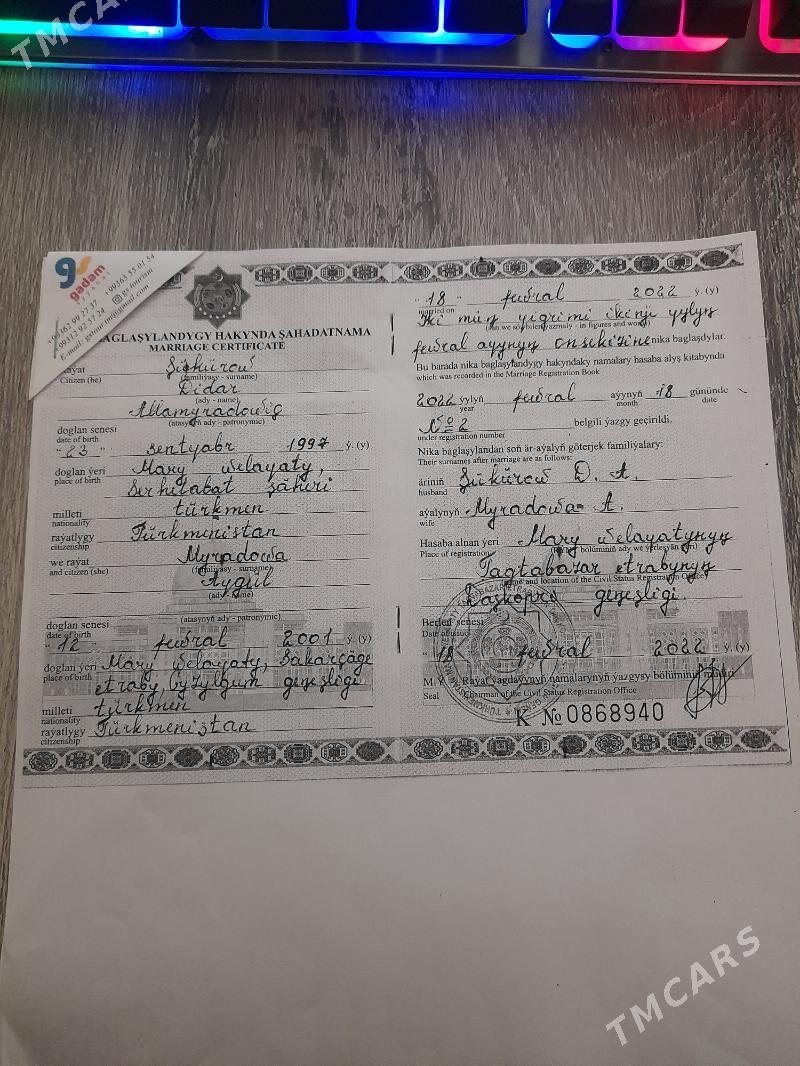 TMCARS
gs
gadam
syýahat
+99362 99 27 37 +99363 55 01 54
+99312 92 37 24 gs.tourism
E-mail: gstourizm@gmail.com
BAGLAŞYLANDYGY HAKYNDA ŞAHADATNAMA
MARRIAGE CERTIFICATE
raýat Şükürow
Citizen (he) (familiýasy - surname)
Didar
(ady - name)
Allamyradowiç
(atasynyň ady - patronymic)
doglan senesi
date of birth
" 23 " sentýabr 1997 ý. (y)
doglan ýeri Mary welaýaty,
place of birth Serhetabat şäheri
milleti türkmen
nationality
raýatlygy Türkmenistan
citizenship
we raýat Myradowa
and citizen (she) (familiýasy - surname)
Aýgül
(ady - name)
(atasynyň ady - patronymic)
doglan senesi
date of birth
" 12 " fewral 2001 ý. (y)
doglan ýeri Mary welaýaty, Sakarçäge
place of birth etraby, geňeşligi
milleti türkmen
nationality
raýatlygy Türkmenistan
citizenship
" 18 " fewral 2022 ý. (y)
married on
Iki müň ýigrimi ikinji ýylyň
(san we söz bilen ýazmaly - in figures and words)
fewral aýynyň onsekizine nika baglaşdylar.
Bu barada nika baglaşylandygy hakyndaky namalary hasaba alyş kitabynda
which was recorded in the Marriage Registration Book
2022 ýylyň fewral aýynyň 18 gününde
year month date
№ 2 belgili ýazgy geçirildi.
under registration number
Nika baglaşylandan soň är-aýalyň göterjek familiýalary:
Their surnames after marriage are as follows:
äriniň Şükürow D. A.
husband
aýalynyň Myradowa A.
wife
Hasaba alnan ýeri Mary welaýatynyň
Place of registration (RÝNÝ bölüminiň ady we ýerleşýän ýeri)
Tagtabazar etrabynyň
name and location of the Civil Status Registration Office
Daşköpri geňeşligi.
Berlen senesi
Date of issue
" 18 " fewral 2022 ý. (y)
M.Ý. Raýat ýagdaýynyň namalarynyň ýazgysy bölüminiň müdiri
Seal Chairman of the Civil Status Registration Office
K № 0868940
TMCARS